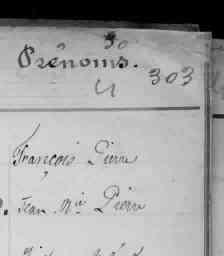 30
Prénoms.
303
François Pierre
Jean Mie Pierre